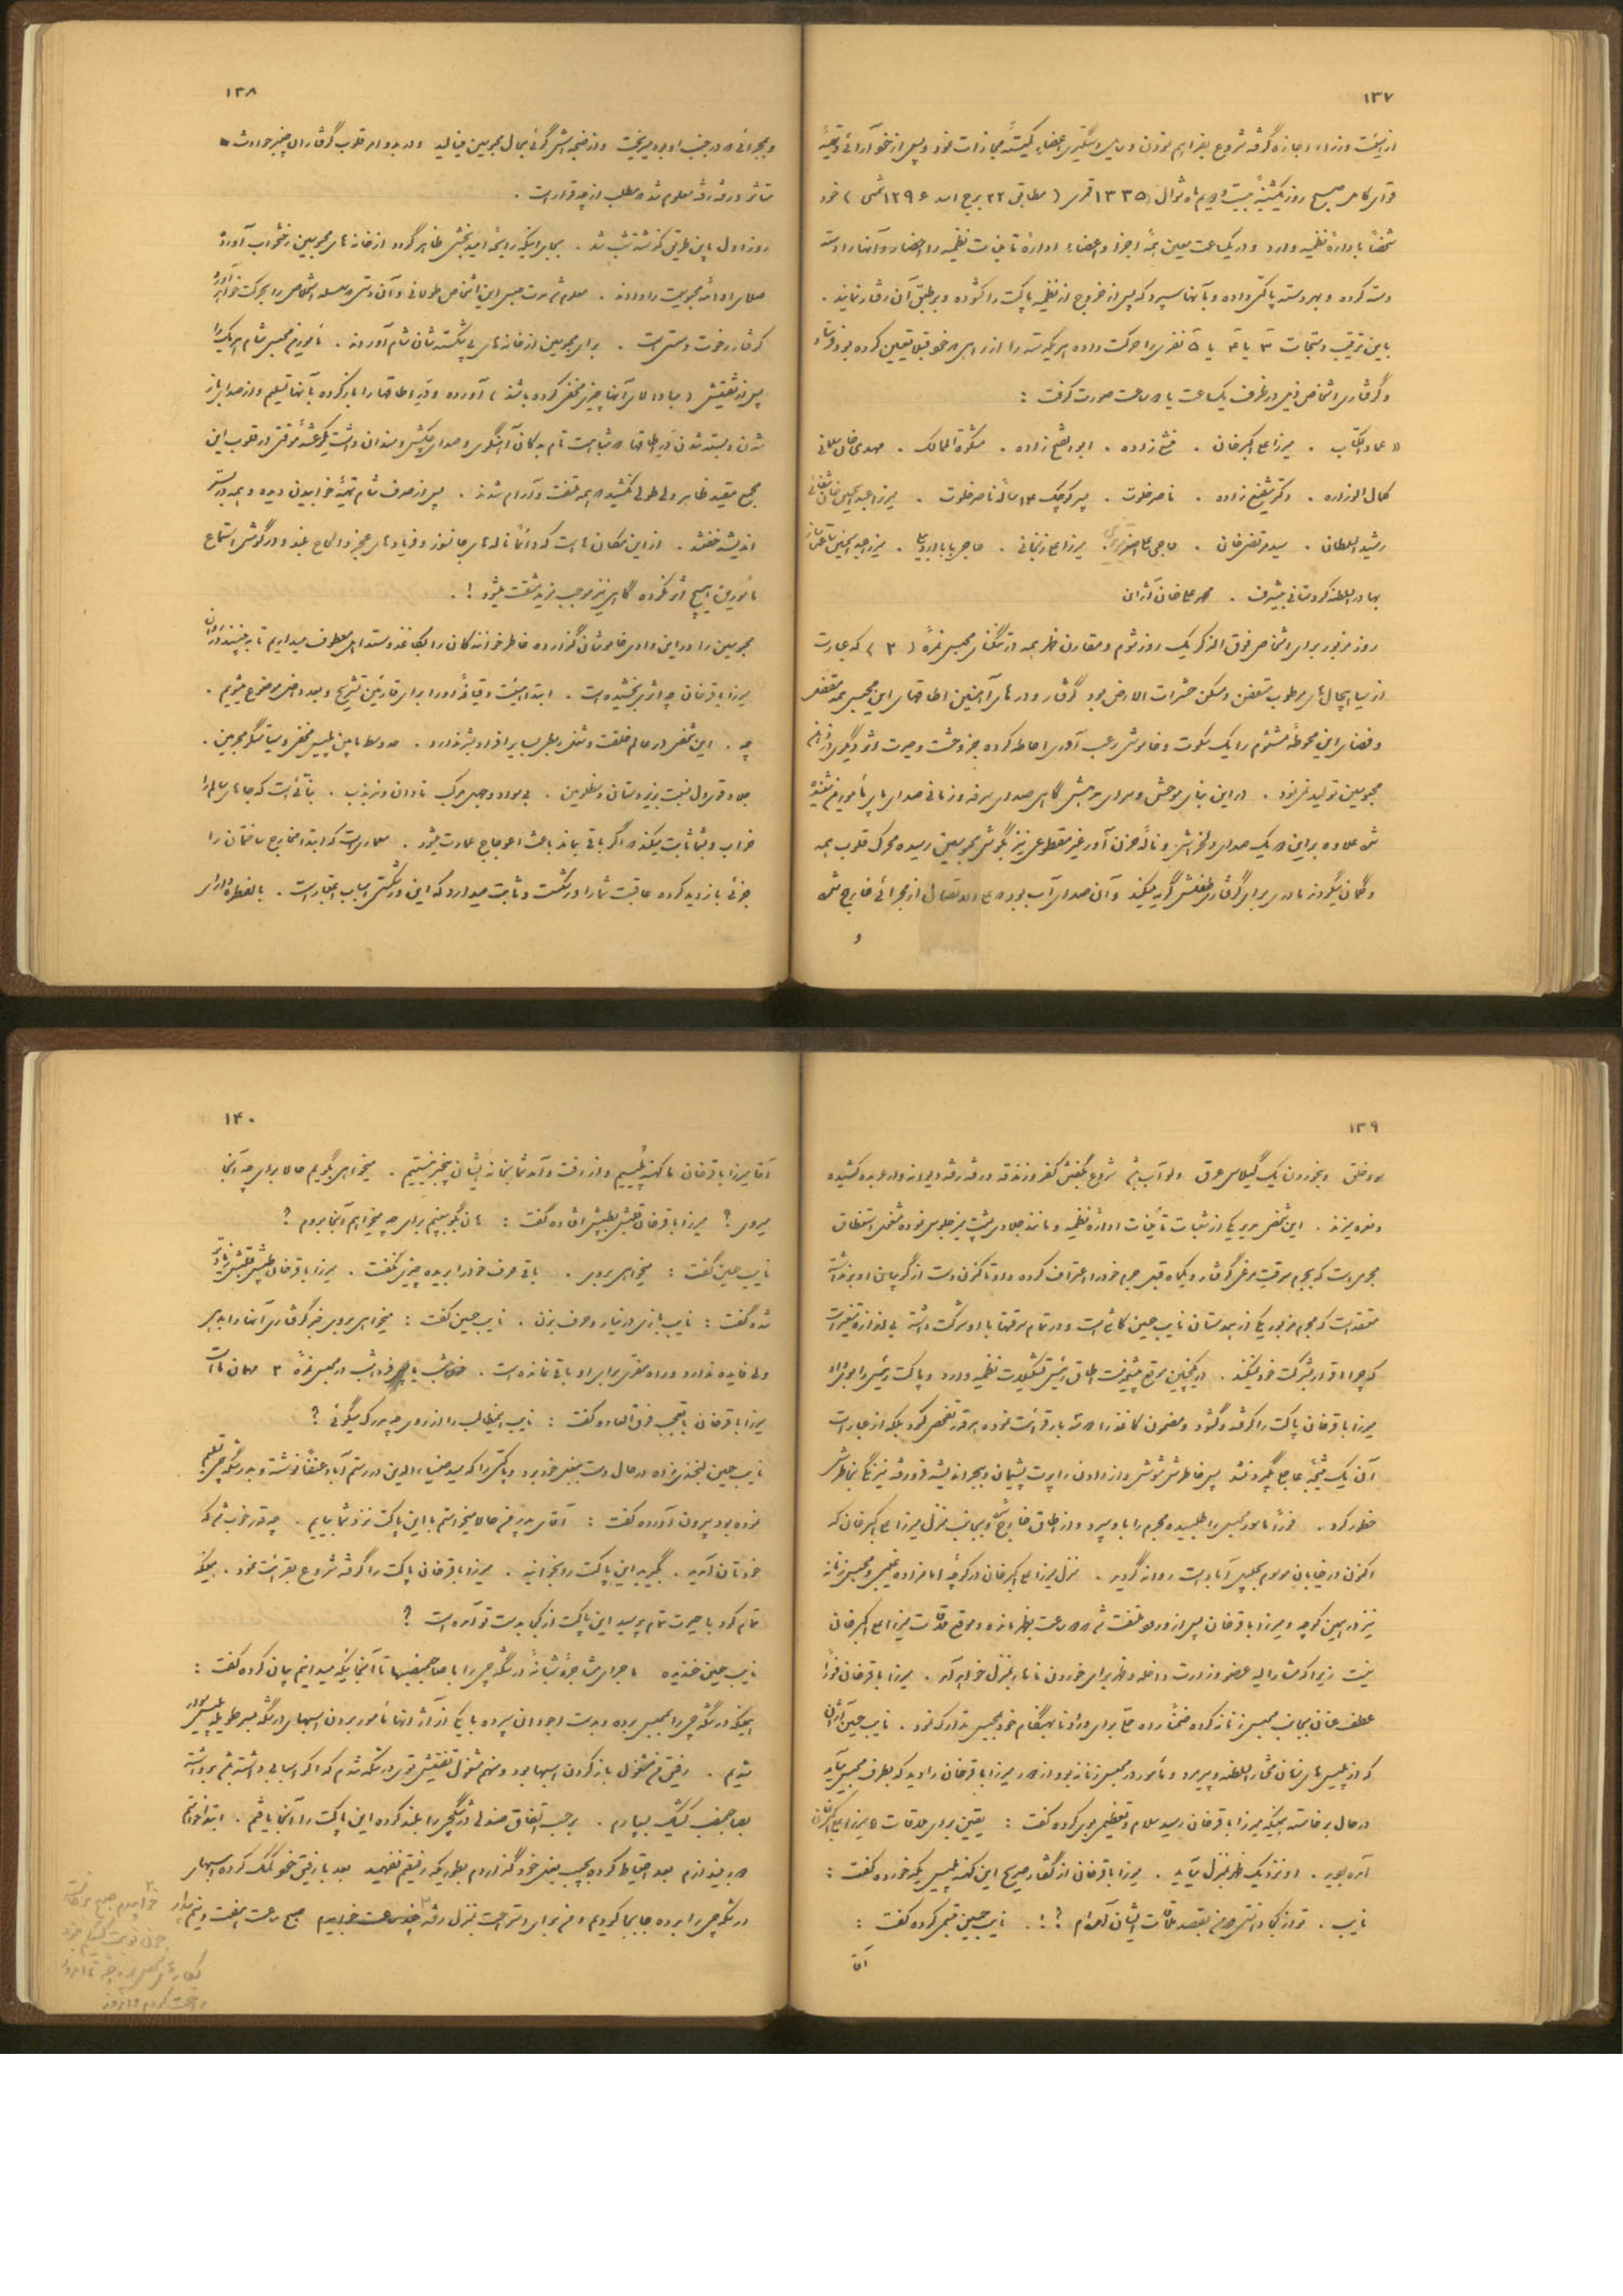 ۱۳۷
از هیئت وزراء اجازه گرفته شروع بفراهم نمودن وسایل دستگیری اعضاء کمیته مجازات نمود و پس از خود آرائی و تهیه
قوای کامل صبح روز یکشنبه بیست و ماه شوال ۱۳۳۵ قمری (مطابق ۲۲ برج اسد ۱۲۹۶ شمسی) خود
شخصاً باداره نظمیه وارد و در یکساعت معین همه اجزاء و اعضاء اداره تأمینات نظمیه را احضار و آنها را دسته
دسته کرده و بهر دسته پاکتی داده و بآنها سپرد که پس از خروج از نظمیه پاکت را گشوده و بر طبق آن رفتار نمایند .
باین ترتیب دستجات ۳ یا ۴ یا ۵ نفری را حرکت داده هر یکدسته را از راهی که خود قبلاً تعیین کرده بود
و گرفتاری اشخاص ذیل در ظرف یکساعت یا دو ساعت صورت گرفت :
« عماد الکتاب . میرزا علی اکبر خان . منشی زاده . ابوالفتح زاده . مشکوة الممالک . مهدی خان
کمال الوزاره . دکتر شفیع زاده . ناصر خلوت . پسر کوچک ۱۴ ساله ناصر خلوت . میرزا عبدالحسین خان شفائی
رشید السلطان . سید مرتضی خان . حاجی علی اصغر . میرزا علی زنجانی . حاجی بابا اردبیلی . میرزا عبدالحسین ساعت ساز
بهادر السلطنه کردستانی . محمد علیخان آژان
روز مزبور برای اشخاص فوق الذکر یک روز شوم و مقارن ظهر همه در تنگنای محبس نمره (۲) که عبارت
از سیاهچال های مرطوب متعفن و مسکن حشرات الارض بود گرفتار و در های آهنین اطاقهای این محبس همه مقفل
و فضای این محوطه مشئوم را یک سکوت و خاموشی رعب آوری احاطه کرده جز وحشت و حیرت اثر دیگری در
محبوسین تولید نمینمود . در این بنای موحش و سرای گاهی صدای سرفه و زمانی صدای پای مأمورین شنیده
می شد علاوه بر این یک صدای دلخراش و ناله حزن آور غیر منقطع نیز بگوش محبوسین رسیده محرک قلوب همه
و گمان میکردند مادری برای گرفتاری طفلش گریه میکند و آن صدای آب بود که علی الاتصال از مجرائی خارج شده
و
۱۳۸
و بمجرائی که در جنب او بود میریخت و از ضجه اش گوئی بحال محبوسین مینالید و در بدو امر قلوب گرفتاران
متأثر و رفته رفته معلوم شد که مطلب از چه قرار است .
روز اول باین طریق گذشته شب شد . بجای اینکه رایحه امید بخشی ظاهر گردد از خانه های محبوسین رختخواب آورده
صلای ادامه محبوسیت را دادند . معلوم شد مدت حبس این اشخاص طولانی و آن
گرفتار رخوت و سستی است . برای محبوسین از خانه های بی شان شام آوردند . مأمورین محبس شام هر یک را
پس از تفتیش (مبادا لای آنها چیزی مخفی کرده باشند) آورده و در اطاقها را باز کرده بآنها تسلیم و از صدای باز
شدن و بسته شدن در اطاقها که شباهت تام بدکان آهنگری و صدای چکش و سندان داشت یک رعشه موقتی در قلوب این
جمع مقید ظاهر ولی طولی نکشید که همه ملتفت و آرام شدند . پس از صرف شام تهیه خوابیدن دیده و همه در بستر
اندیشه خفتند . از این مکان است که دائماً ناله های جانسوز و فریاد های عجز و الحاح بلند و در گوش استماع
مأمورین هیچ اثر نکرده گاهی نیز موجب مزید مشقت میشود ! .
محبوسین را در این وادی خاموشان گذارده خاطر خوانندگان را بکاغذ معطوف میداریم تا ببینند در
میرزا باقر خان چه اثری بخشیده است . ابتدا هیئت و قیافه او را برای قارئین تشریح و بعد داخل موضوع میشویم .
چه . این شخص در عالم خلقت و بنظر بسیاری افراد بشر ندارد . حد وسط مابین پلیس مخفی و .
جلاد قوی دل نسبت بزیر دستان و مظلومین . بی سواد و جهل مرکب نادان و مذبذب . بنائی است که جاهای سالم را
خراب و بشما ثابت میکند که اگر باقی بماند باعث اعوجاج عمارت میشود . معماری است که ابتدا مخارج ساختمان را
جزئی بازدید کرده عاقبت شما را ورشکست و ثابت میدارد که این ورشکستی اسباب اعتبار است . بالفطره دارای
۱۳۹
سوء خلق و بخوردن یک گیلاس عرق ولو آب باشد شروع بگفتن کفر و زندقه و رفته رفته دیوانه وار عربده کشیده
و نعره میزند . این شخص مدیر یکی از شعبات تأمینات اداره نظمیه و مانند جلادی پشت میز جلوس نموده مشغول استنطاق
مجرمی است که بجرم سرقت مدعی گرفتار و یکماه قبل جرم خود را اعتراف کرده ولی تا کنون دست از گریبان او برنداشته
معتقد است که مجرم مزبور یکی از همدستان نایب حسین کاشی است و در تمام سرقتها با او شرکت داشته بی اندازه متغیر است
که چرا اقرار بشرکت خود نمیکند . در یکچنین موقع پیشخدمت اطاق رئیس تشکیلات نظمیه وارد و پاکت رئیس را بوی داد
میرزا باقر خان پاکت را گرفته و گشود و مضمون کاغذ را سه بار قرائت نموده هر قدر تفحص کرد بلکه از عبارات
آن یک نتیجه عاجلی بگیرد نشد پس خاطرش مشوش و از دادن راپرت پشیمان و ببحر اندیشه فرو رفته نیرنگی بخاطرش
خطور کرد . فوراً مأمور محبس را طلبیده مجرم را باو سپرد و از اطاق خارج شده و بجانب منزل میرزا علی اکبر خان که
اکنون در خیابان موسوم بجلیل آباد است روانه گردید . منزل میرزا علی اکبر خان در کوچه امامزاده و محبس زنانه
نیز در همین کوچه و میرزا باقر خان پس از ورود ملتفت شد که دو ساعت بظهر مانده و موقع ملاقات میرزا علی اکبر خان
نیست زیرا که مشار الیه عضو وزارت داخله و ظهر برای خوردن ناهار بمنزل خواهد آمد . میرزا باقر خان فوراً
عطف عنان بجانب محبس زنانه کرده ضمناً راه حلی برای ورود نابهنگام خود بمحبس تدارک نمود . نایب حسین آژان
که از پلیس های زمان مختار السلطنه و پیرمرد و مأمور در محبس زنانه بود از دور میرزا باقر خان را دید که بطرف محبس میآید
در حال برخاسته همینکه میرزا باقر خان رسید سلام و تعظیم بوی کرده گفت : یقین برای ملاقات میرزا علی اکبر خان
آمده بودید . او نزدیک ظهر بمنزل میآید . میرزا باقر خان از گفتار صریح این کهنه پلیس یکه خورده گفت :
نایب . تو از کجا دانستی که من بقصد ملاقات ایشان آمده ام ؟! . نایب حسین تبسمی کرده گفت :
آقا
۱۴۰
آقا میرزا باقر خان ما کهنه پلیسیم و از رفت و آمد شما بخانه ایشان بیخبر نیستیم . میخواهی بگویم حالا برای چه آنجا
میروی ؟ میرزا باقر خان قلبش بطپش افتاده گفت : هان بگو ببینم برای چه میخواهم آنجا بروم ؟
نایب حسین گفت : میخواهی بروی . باقی حرف خود را بریده چیزی نگفت . میرزا باقر خان طپش قلبش زیادتر
شده گفت : نایب بازی در نیار و حرف بزن . نایب حسین گفت : میخواهی بروی خبر گرفتاری آنها را بدهی
ولی فایده ندارد و راه مفری برای او باقی نمانده است . امشب یا فردا شب در محبس نمره ۲ مهمان ما است
میرزا باقر خان با تعجب فوق العاده گفت : نایب این مطالب را از روی چه مدرک میگوئی ؟
نایب حسین لبخندی زده در حال دست ببغل خود برد و پاکتی را که سید ضیاء الدین در رستم آباد نوشته و بدرشکه چی تسلیم
نموده بود بیرون آورده گفت : آقای مدیر من حالا میخواستم با این پاکت نزد شما بیایم . چه قدر خوب شد که
خودتان آمدید . بگیرید این پاکت را بخوانید . میرزا باقر خان پاکت را گرفته شروع بقرائت نمود . همینکه
تمام کرد با حیرت تمام پرسید این پاکت از کجا بدست تو آمده است ؟
نایب حسین خندیده ماجرای مشاجره شبانه درشکه چی را با صاحبمنصبها تا آنجائیکه میدانیم بیان کرده گفت :
همینکه درشکه چی را بمحبس برده و بدست اجودان سپرده با یکی از آژانها مأمور بردن اسبهای درشکه بسر طویله پلیس سوار
شدیم . رفیق من مشغول باز کردن اسبها بود و منهم مشغول تفتیش توی درشکه شدم که اگر اسبابی داشته باشد برداشته
بصاحبمنصب کشیک بسپارم . بر حسب اتفاق صندلی درشکه چی را بلند کرده این پاکت را آنجا یافتم . ابتدا خواستم
دور بیندازم بعد احتیاط کرده بجیب بغل خود گذاردم بطوریکه رفیقم نفهمید بعد با رفیق خود کمک کرده اسبهای
درشکه چی را برده جابجا کردیم و من برای استراحت بمنزل رفته چند ساعت خوابیدم صبح ساعت هفت
خوابیدم صبح برخاسته
چون نوبت کشیکم نبود
راحت کردم و امروز